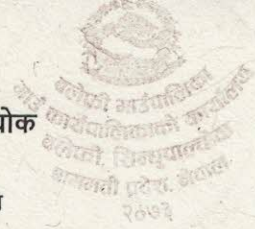 बलेफी गाउँपालिका
गाउँ कार्यपालिकाको कार्यालय
बलेफी, सिन्धुपाल्चोक
बागमती प्रदेश, नेपाल
२०७३